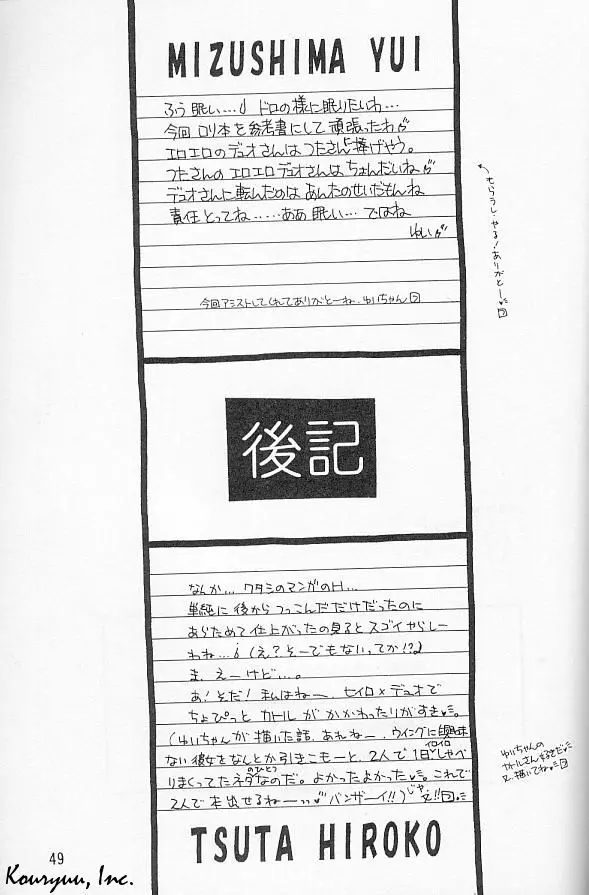 MIZUSHIMA YUI
ふう 眠い…
ドロの様に眠りたいわ…
今回 ロリ本を参考書にして 頑張ったわ
エロエロのデュオさんは つたさんに捧げやう。
つたさんの エロエロデュオさんは ちょんだいね
デュオさんに転んだのは あんたのせいだもんね
責任とってね……ああ 眠い… ではね
ゆい
今回アシストしてくれてありがとーね、ゆいちゃん
ありがとー
後記
なんか… ワタシのマンガのH…
単純に 後から つっこんだだけだったのに
あらためて 仕上がったの見ると スゴイやらしー
わね… (え? そーでもないってか!?)
ま、えーけど…。
あ! そだ! 私はね―、ゼイロ×デュオで
ちょぴっと カトル が かかわったりが すき
(ゆいちゃんが 描いた話、あれね―、ウイングに興味
ない彼女をなんとか引きこもーと、2人で1日イロイロしゃべ
りまくってたネタなのひとつなのだ。よかったよかった これで
2人で 本 出せるねーっっ バンザーイ!!)
ゆいちゃんの
カトルさん
又、描いてね
TSUTA HIROKO
49
Kouryuu, Inc.